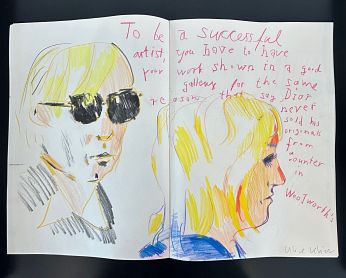 To be a successful
artist, you have to have
your work shown in a good
gallery for the same
reason that, say Dior
never
sold his
originals
from
a
counter
in
Woolworth's